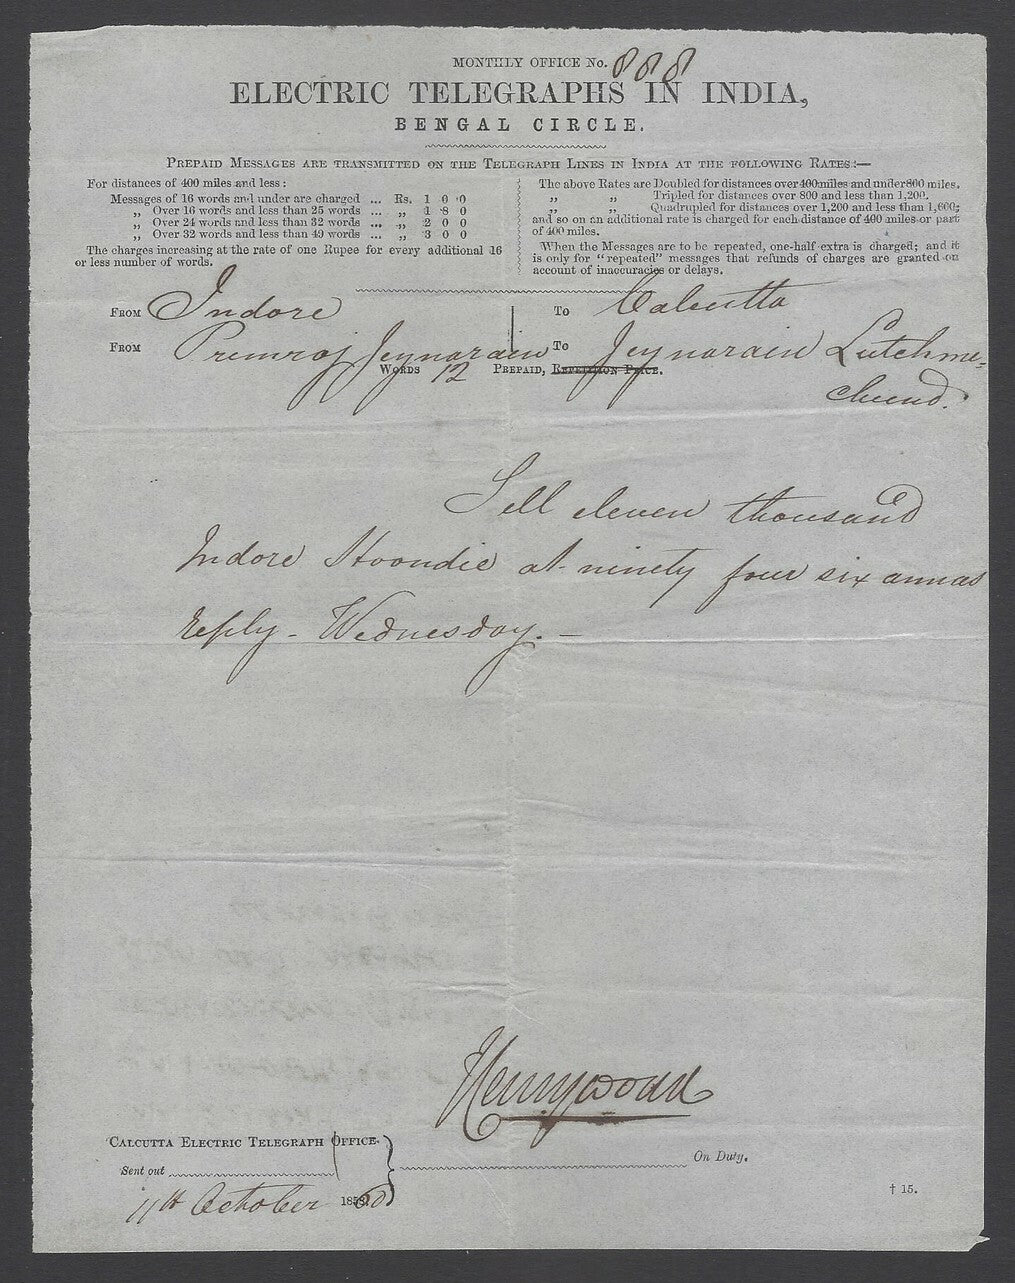 MONTHLY OFFICE No. 888
ELECTRIC TELEGRAPHS IN INDIA,
BENGAL CIRCLE.
PREPAID MESSAGES ARE TRANSMITTED ON THE TELEGRAPH LINES IN INDIA AT THE FOLLOWING RATES:—
For distances of 400 miles and less:
Messages of 16 words and under are charged ... Rs. 1 0 0
„ Over 16 words and less than 25 words ... „ 1 8 0
„ Over 24 words and less than 32 words ... „ 2 0 0
„ Over 32 words and less than 49 words ... „ 3 0 0
The charges increasing at the rate of one Rupee for every additional 16
or less number of words.
The above Rates are Doubled for distances over 400 miles and under 800 miles.
„ „ Tripled for distances over 800 and less than 1,200.
„ „ Quadrupled for distances over 1,200 and less than 1,600;
and so on an additional rate is charged for each distance of 400 miles or part
of 400 miles.
When the Messages are to be repeated, one-half extra is charged; and it
is only for "repeated" messages that refunds of charges are granted on
account of inaccuracies or delays.
FROM Indore To Calcutta
FROM Premraj Jeynarain To Jeynarain Lutchme-
chund.
WORDS 12 PREPAID, REPETITION PRICE.
Sell eleven thousand
Indore Hoondie at ninety four six annas
reply - Wednesday. —
Henrywood
CALCUTTA ELECTRIC TELEGRAPH OFFICE.
Sent out
On Duty.
11th October 1860
† 15.